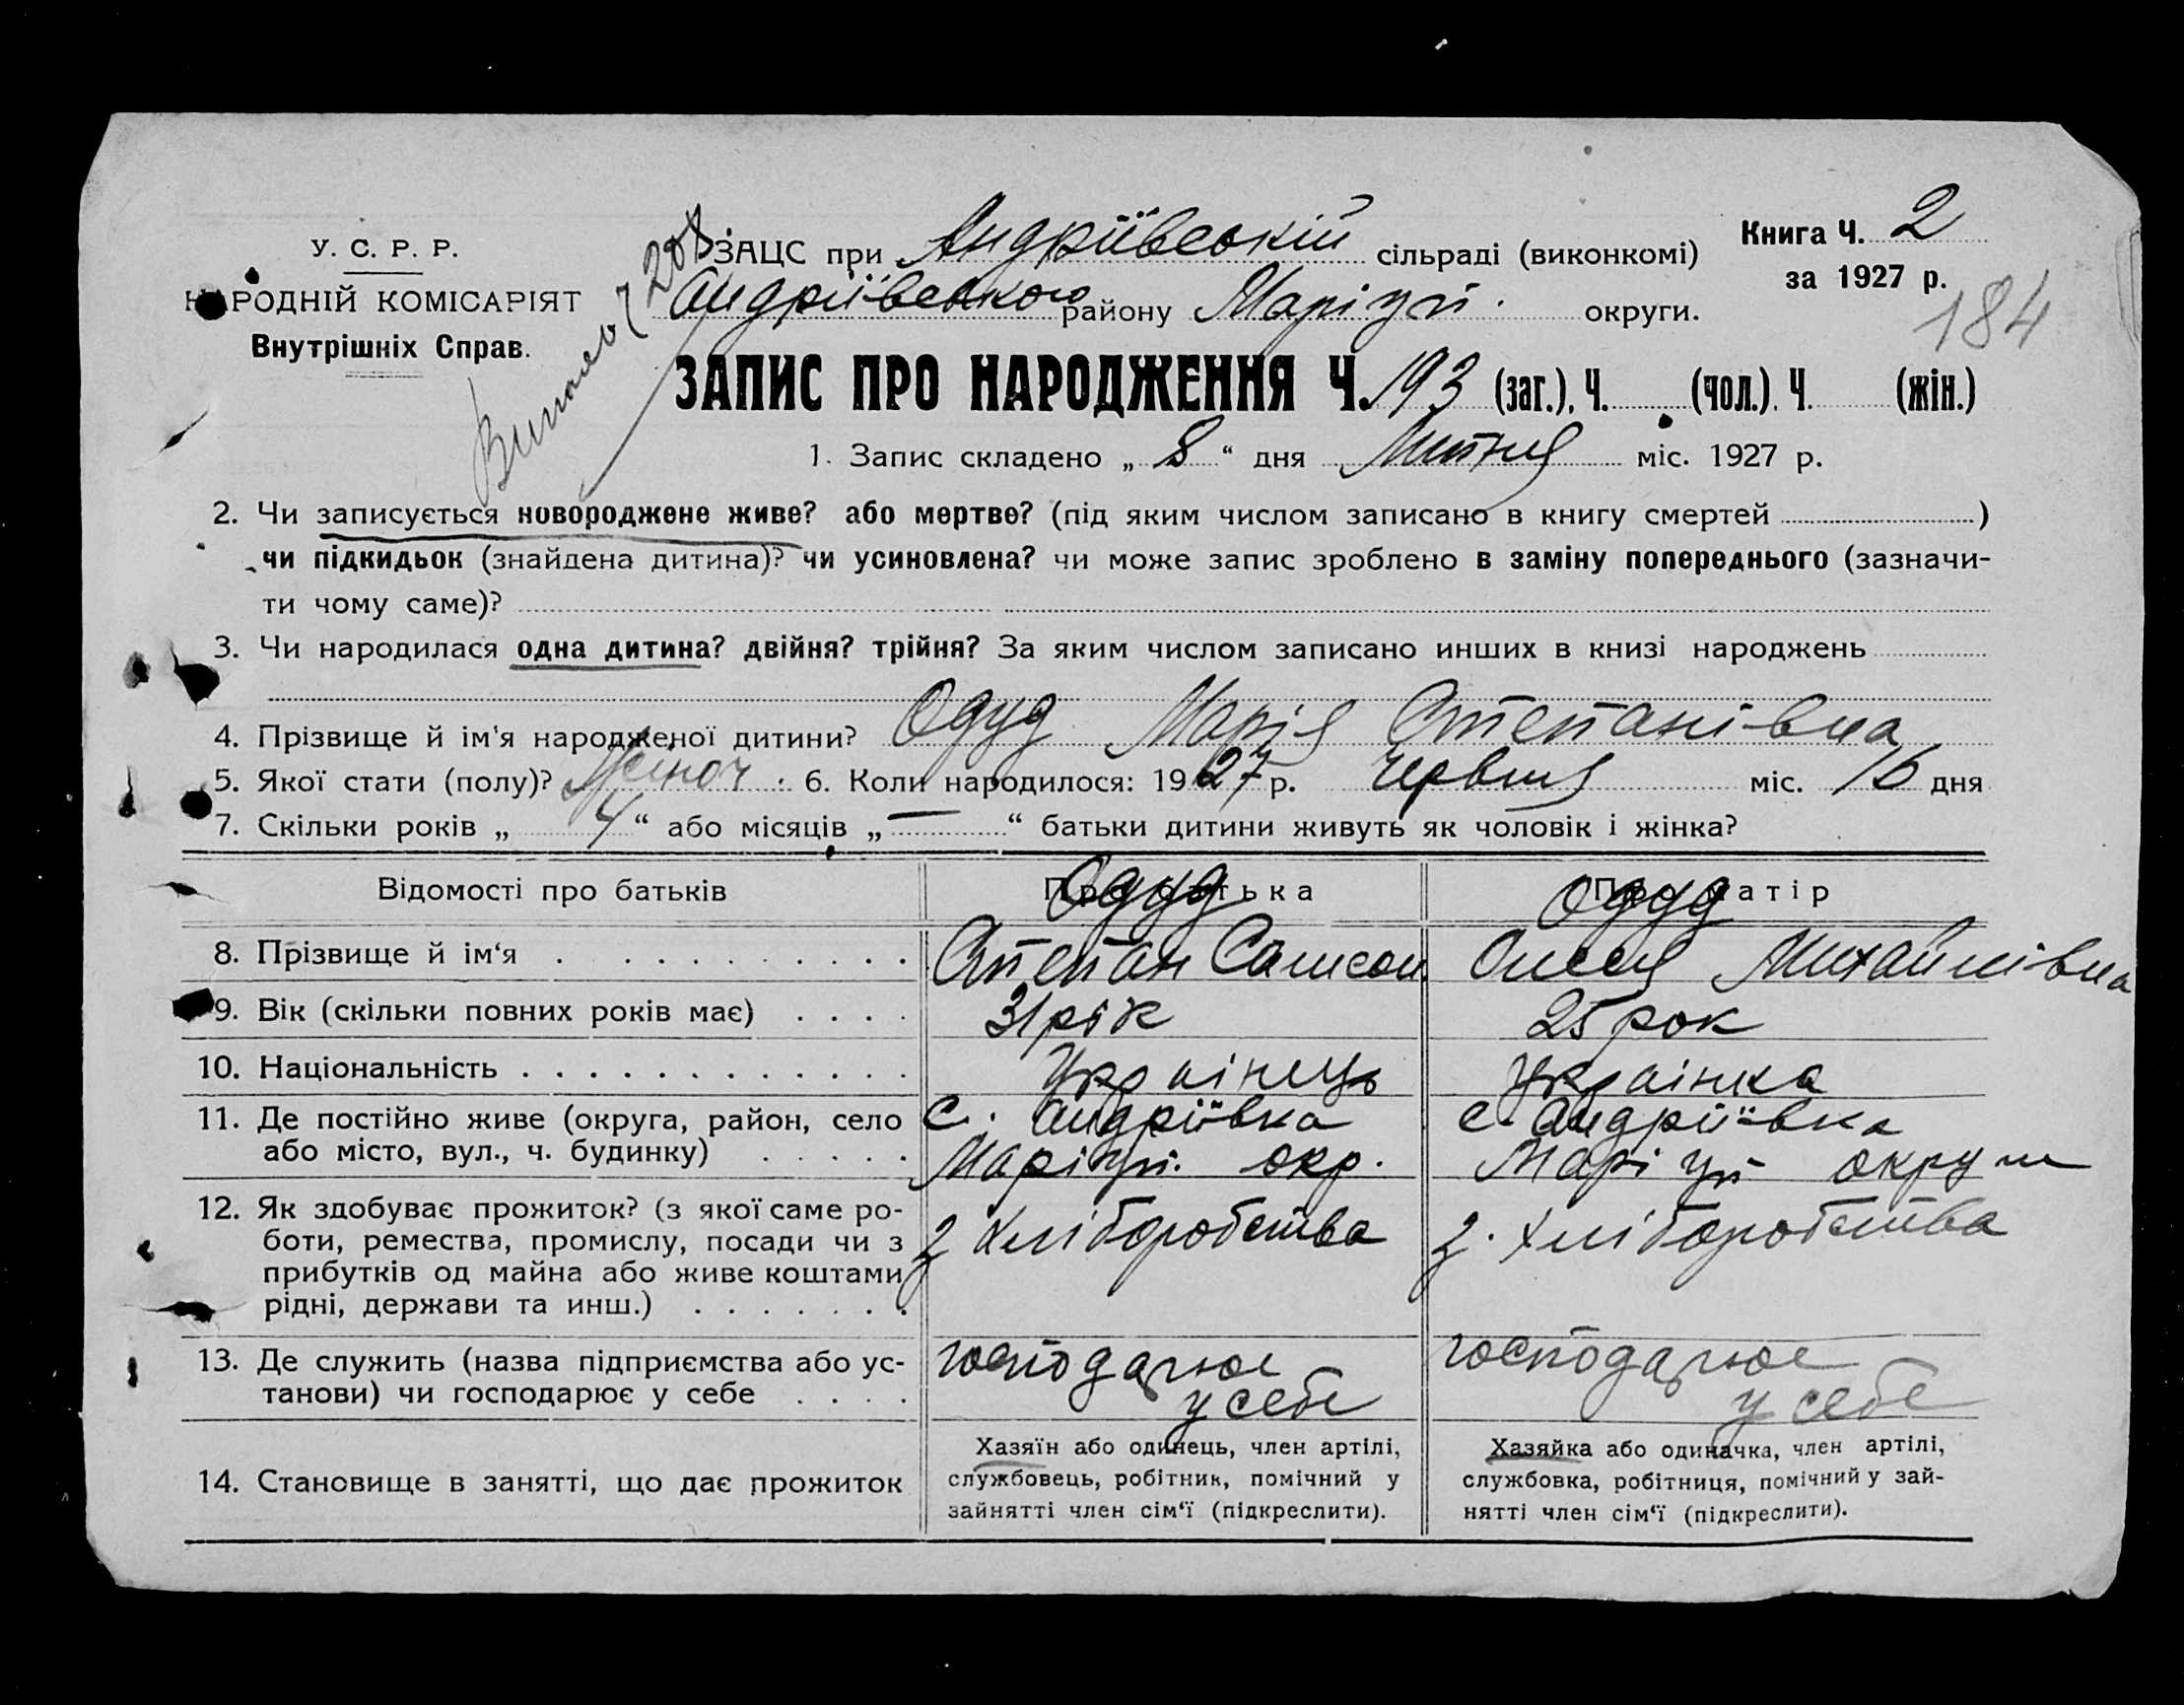 У. С. Р. Р.
НАРОДНІЙ КОМІСАРІЯТ
Внутрішніх Справ.
ЗАЦС при Андріївській сільраді (виконкомі)
Андріївського району Маріуп. округи.
Книга Ч. 2
за 1927 р.
184
ЗАПИС ПРО НАРОДЖЕННЯ Ч. 193 (заг.), Ч. (чол.). Ч. (жін.)
1. Запис складено „ 8 “ дня Липня міс. 1927 р.
2. Чи записується новороджене живе? або мертве? (під яким числом записано в книгу смертей )
чи підкидьок (знайдена дитина)? чи усиновлена? чи може запис зроблено в заміну попереднього (зазначи-
ти чому саме)?
3. Чи народилася одна дитина? двійня? трійня? За яким числом записано инших в книзі народжень
4. Прізвище й ім'я народженої дитини? Одуд Марія Степанівна
5. Якої стати (полу)? Жіноч. 6. Коли народилося: 1927 р. Червня міс. 16 дня
7. Скільки років „ 4 “ або місяців „ — “ батьки дитини живуть як чоловік і жінка?
Відомості про батьків Про батька Про матір
Одуд Одуд
8. Прізвище й ім‘я Степан Самсон. Олеся Михайлівна
9. Вік (скільки повних років має) 31 рік 25 рок
10. Національність Українець Українка
11. Де постійно живе (округа, район, село с. Андріївка с. Андріївка
або місто, вул., ч. будинку) Маріуп. окр. Маріуп округи
12. Як здобуває прожиток? (з якої саме ро-
боти, ремества, промислу, посади чи з з хліборобства з. хліборобства
прибутків од майна або живе коштами
рідні, держави та инш.)
13. Де служить (назва підприємства або ус- господарює господарює
танови) чи господарює у себе у себе у себе
14. Становище в занятті, що дає прожиток
Хазяїн або одинець, член артілі,
службовець, робітник, помічний у
зайнятті член сім‘ї (підкреслити).
Хазяйка або одиначка, член артілі,
службовка, робітниця, помічний у зай-
нятті член сім‘ї (підкреслити).